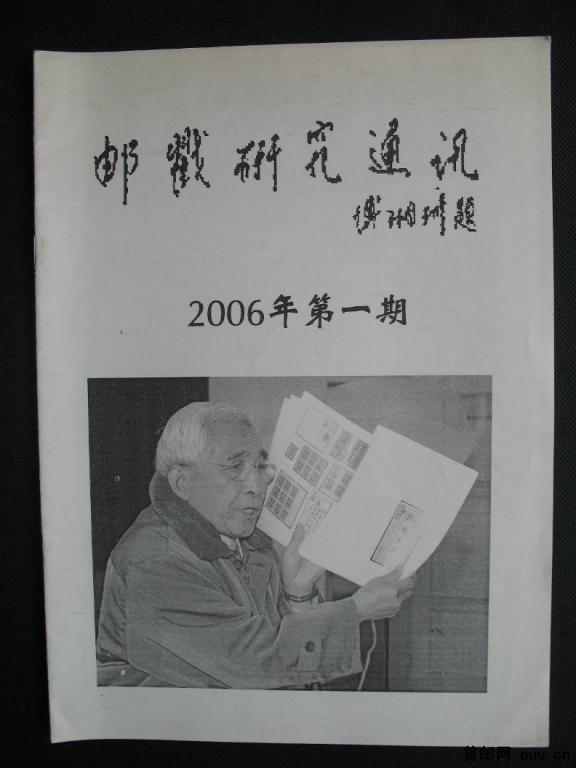 邮戳研究通讯
傅湘琳题
2006年第一期
普邮网 puu.cn